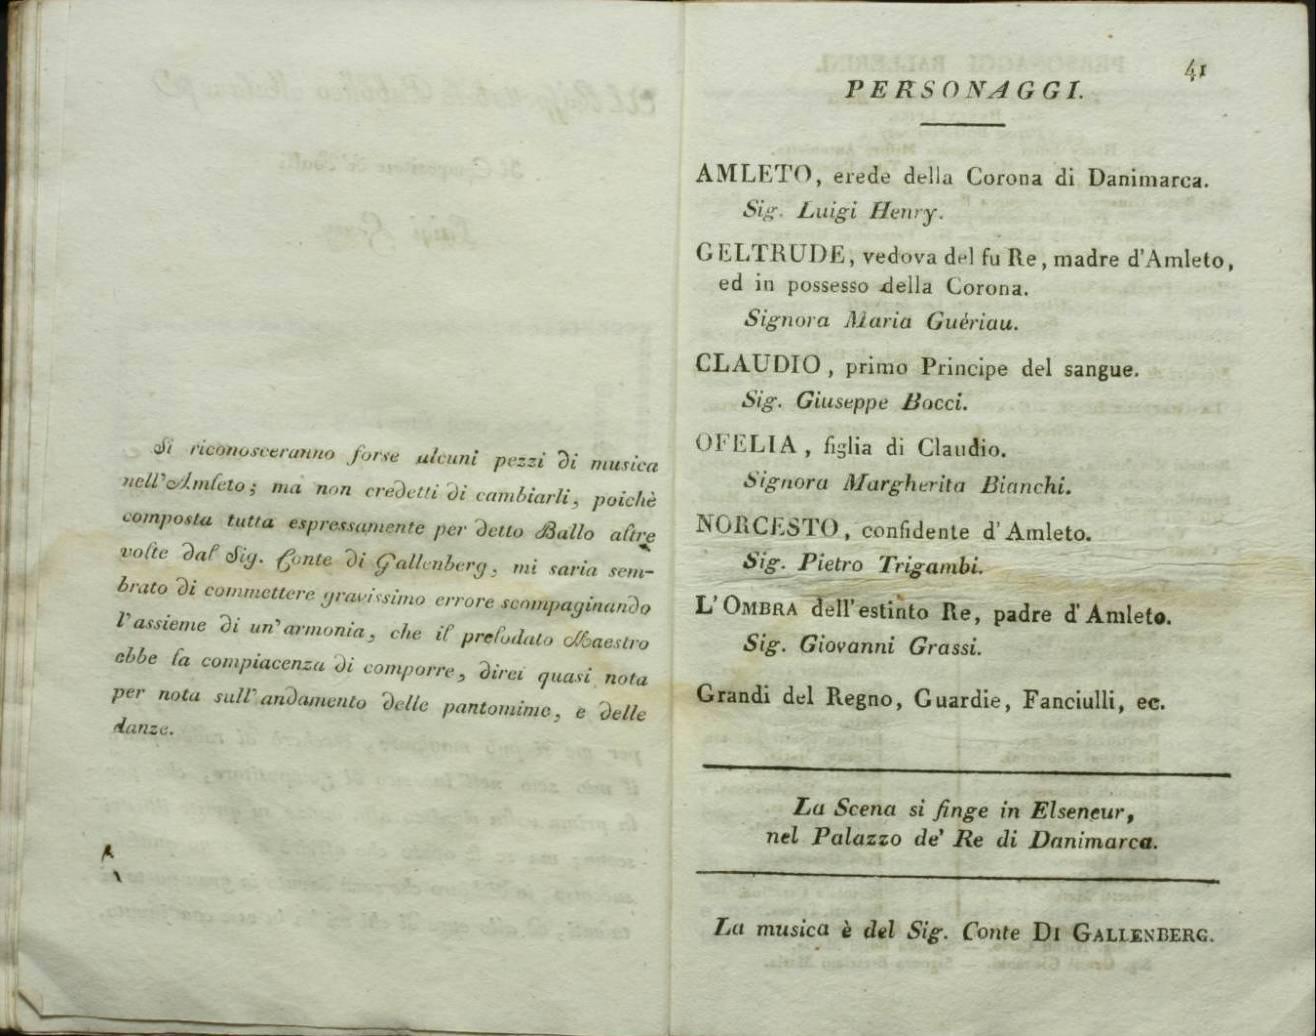 Si riconosceranno forse alcuni pezzi di musica
nell'Amleto; ma non credetti di cambiarli, poichè
composta tutta espressamente per detto Ballo altre
volte dal Sig. Conte di Gallenberg, mi saria sem-
brato di commettere gravissimo errore scompaginando
l'assieme di un'armonia, che il prelodato Maestro
ebbe la compiacenza di comporre, direi quasi nota
per nota sull'andamento delle pantomime, e delle
danze.
41
PERSONAGGI.
AMLETO, erede della Corona di Danimarca.
Sig. Luigi Henry.
GELTRUDE, vedova del fu Re, madre d'Amleto,
ed in possesso della Corona.
Signora Maria Guériau.
CLAUDIO, primo Principe del sangue.
Sig. Giuseppe Bocci.
OFELIA, figlia di Claudio.
Signora Margherita Bianchi.
NORCESTO, confidente d'Amleto.
Sig. Pietro Trigambi.
L'OMBRA dell'estinto Re, padre d'Amleto.
Sig. Giovanni Grassi.
Grandi del Regno, Guardie, Fanciulli, ec.
La Scena si finge in Elseneur,
nel Palazzo de' Re di Danimarca.
La musica è del Sig. Conte DI GALLENBERG.